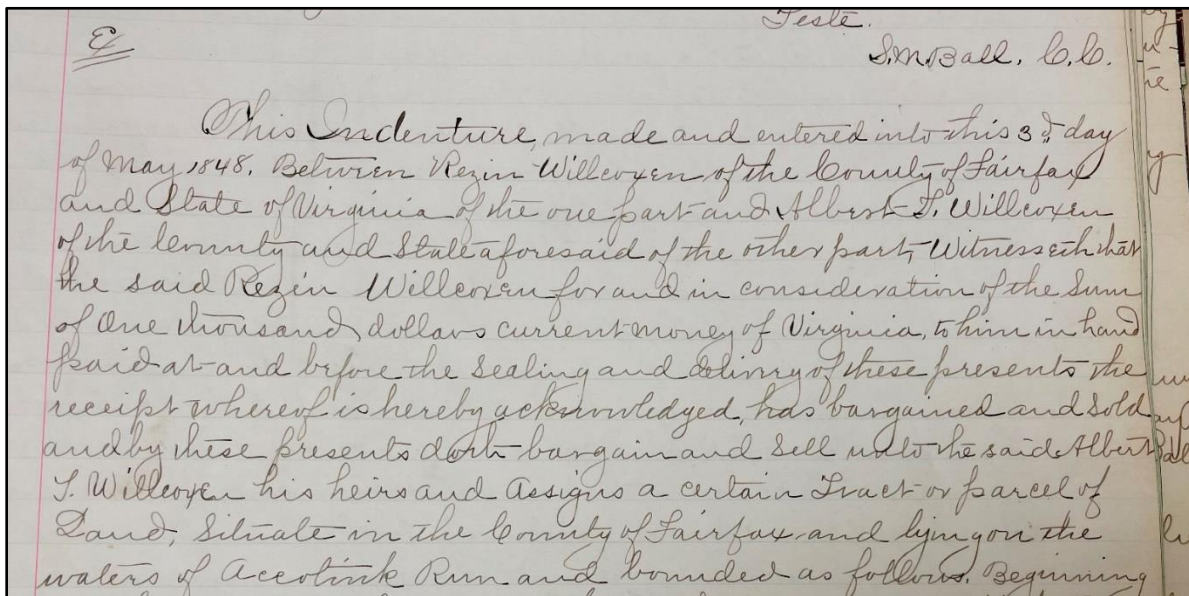 Teste.
S.M. Ball. C.C.
Ex
This Indenture, made and entered into this 3d day
of May 1848. Between Rezin Willcoxen of the County of Fairfax
and State of Virginia of the one part and Albert T. Willcoxen
of the County and State aforesaid of the other part, Witnesseth that
the said Rezin Willcoxen for and in consideration of the Sum
of One thousand dollars current money of Virginia, to him in hand
paid at and before the Sealing and delivery of these presents the
receipt whereof is hereby acknowledged, has bargained and Sold
and by these presents doth bargain and Sell unto the said Albert
T. Willcoxen his heirs and Assigns a certain Tract or parcel of
Land, Situate in the County of Fairfax and lying on the
waters of Accotink Run and bounded as follows. Beginning